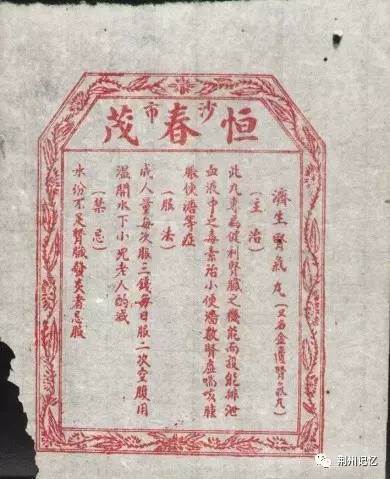 沙市
恒春茂
濟生腎氣丸(又名金匱腎氣丸)
(主治)
此丸專為健利腎臟之機能而設能排泄
血液中之毒素治小便瀕數腎虛喘咳腫
脹便溏等症
(服法)
成人量每次服三錢每日服二次空腹用
溫開水下小兒老人酌減
(禁忌)
水份不足腎臟發炎者忌服
荆州记忆